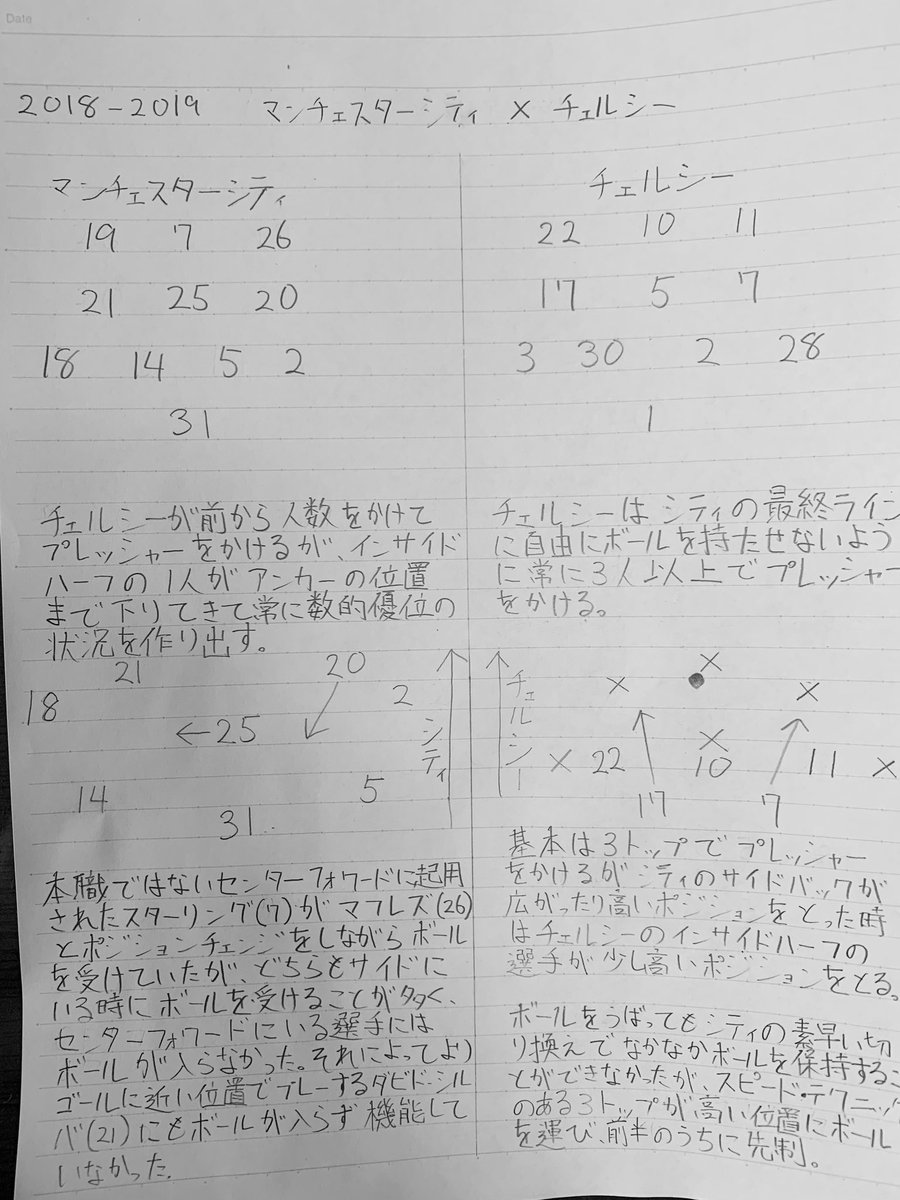 Date
2018-2019 マンチェスターシティ × チェルシー
マンチェスターシティ
19 7 26
21 25 20
18 14 5 2
31
チェルシーが前から人数をかけて
プレッシャーをかけるが、インサイド
ハーフの1人がアンカーの位置
まで下りてきて常に数的優位の
状況を作り出す。
21 20
18 2
←25
シティ
14 5
31
本職ではないセンターフォワードに起用
されたスターリング(7)がマフレズ(26)
とポジションチェンジをしながらボール
を受けていたが、どちらもサイドに
いる時にボールを受けることが多く、
センターフォワードにいる選手には
ボールが入らなかった。それによってより
ゴールに近い位置でプレーするダビド・シル
バ(21)にもボールが入らず機能して
いなかった.
チェルシー
22 10 11
17 5 7
3 30 2 28
1
チェルシーはシティの最終ライン
に自由にボールを持たせないよう
に常に3人以上でプレッシャー
をかける。
チェルシー
×
× ×
×
× 22 10 11 ×
17 7
基本は3トップでプレッシャー
をかけるがシティのサイドバックが
広がったり高いポジションをとった時
はチェルシーのインサイドハーフの
選手が少し高いポジションをとる。
ボールをうばってもシティの素早い切
り換えでなかなかボールを保持するこ
とができなかったが、スピード・テクニック
のある3トップが高い位置にボール
を運び、前半のうちに先制。